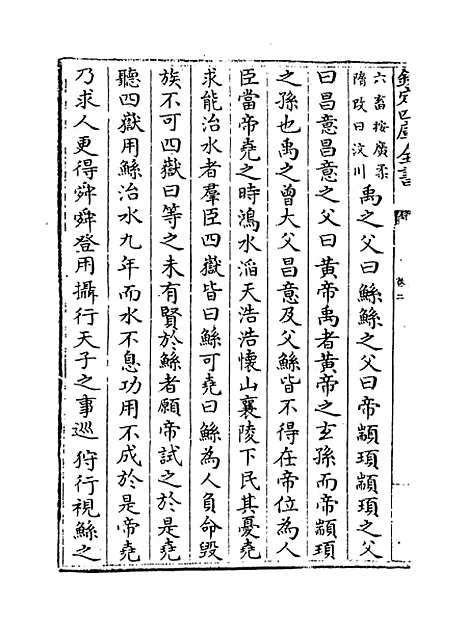 欽定四庫全書
卷二
六畜按廣柔
隋改曰汶川
禹之父曰鯀鯀之父曰帝顓頊顓頊之父
曰昌意昌意之父曰黃帝禹者黃帝之玄孫而帝顓頊
之孫也禹之曾大父昌意及父鯀皆不得在帝位為人
臣當帝堯之時鴻水滔天浩浩懷山襄陵下民其憂堯
求能治水者羣臣四嶽皆曰鯀可堯曰鯀為人負命毀
族不可四嶽曰等之未有賢於鯀者願帝試之於是堯
聽四嶽用鯀治水九年而水不息功用不成於是帝堯
乃求人更得舜舜登用攝行天子之事巡狩行視鯀之